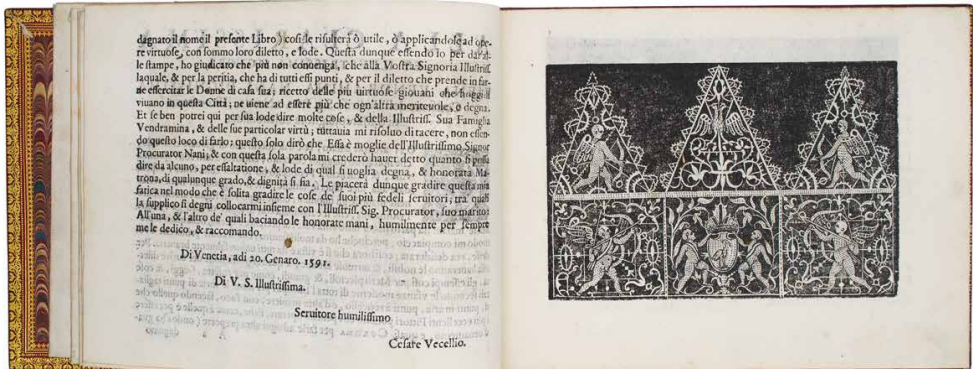 dagnato il nome il presente Libro) cosi le risulterà ò utile, ò applicandole ad ope-
re virtuose, con sommo loro diletto, e lode. Questa dunque essendo io per dar al-
le stampe, ho giudicato che più non conuenga, che alla Vostra Signoria Illustriss.
laquale, & per la peritia, che ha di tutti essi punti, & per il diletto che prende in far-
ne essercitar le Donne di casa sua; ricetto delle più virtuose giouani che hoggidì
viuano in questa Città; ne uiene ad essere più che ogn'altra meriteuole, e degna.
Et se ben potrei qui per sua lode dire molte cose, & della Illustriss. Sua Famiglia
Vendramina, & delle sue particolar virtù; tuttauia mi risoluo di tacere, non essen-
do questo loco di farlo; questo solo dirò che Essa è moglie dell'Illustrissimo Signor
Procurator Nani; & con questa sola parola mi crederò hauer detto quanto si possa
dire da alcuno, per essaltatione, & lode di qual si uoglia degna, & honorata Ma-
trona, di qualunque grado, & dignità si sia. Le piacerà dunque gradire questa mia
fatica nel modo che è solita gradire le cose de' suoi più fedeli seruitori; tra' quali
la supplico si degni collocarmi insieme con l'Illustriss. Sig. Procurator, suo marito:
All'una, & l'altro de' quali baciando le honorate mani, humilmente per sempre
me le dedico, & raccomando.
Di Venetia, adi 20. Genaro. 1591.
Di V. S. Illustrissima.
Seruitore humilissimo
Cesare Vecellio.